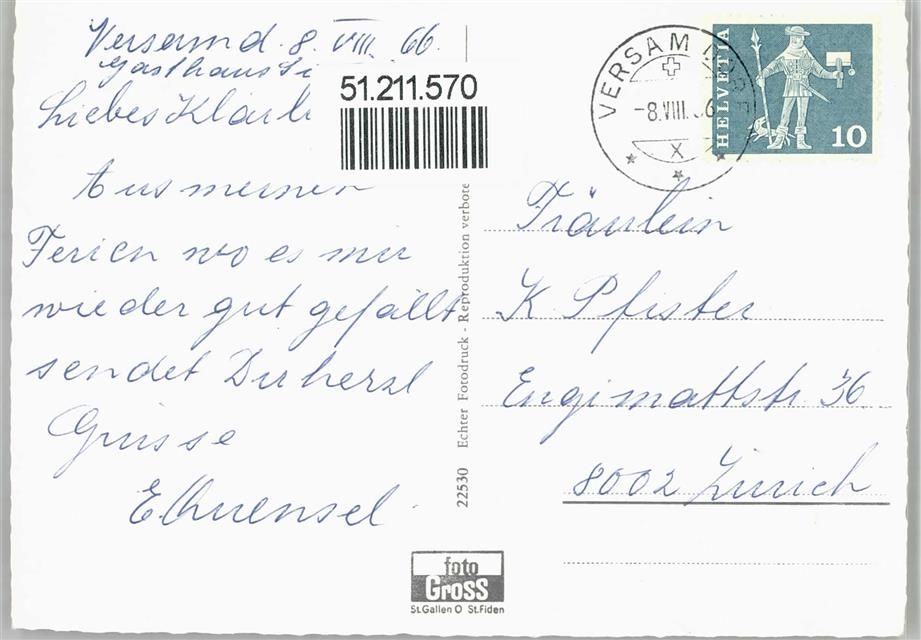 Versam d. 8. VIII. 66.
Gasthaus
51.211.570
Liebes
Aus meinen
Ferien wo es mir
wieder gut gefällt
sendet Dir herzl
Grüsse
VERSAM
-8.VIII.
X
HELVETIA
10
Fräulein
K Pfister
Engimattstr 36
8002 Zürich
22530 Echter Fotodruck - Reproduktion verbote
foto
Gross
St.Gallen O St.Fiden